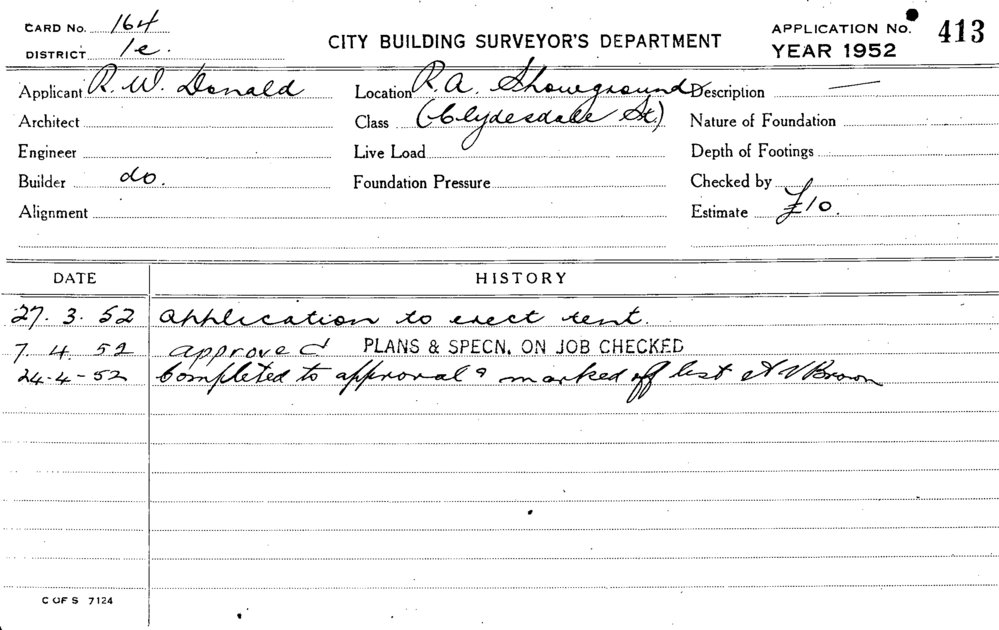 CARD No. 164
DISTRICT 1e.
CITY BUILDING SURVEYOR'S DEPARTMENT
APPLICATION No. 413
YEAR 1952
Applicant R. W. Donald Location R.A. Showground Description —
Architect Class (Clydesdale St.) Nature of Foundation
Engineer Live Load Depth of Footings
Builder do. Foundation Pressure Checked by
Alignment Estimate £10.
DATE HISTORY
27. 3. 52 Application to erect tent.
7. 4. 52 approved PLANS & SPECN. ON JOB CHECKED
24-4-52 Completed to approval & marked off list A V Brown
C OF S 7124